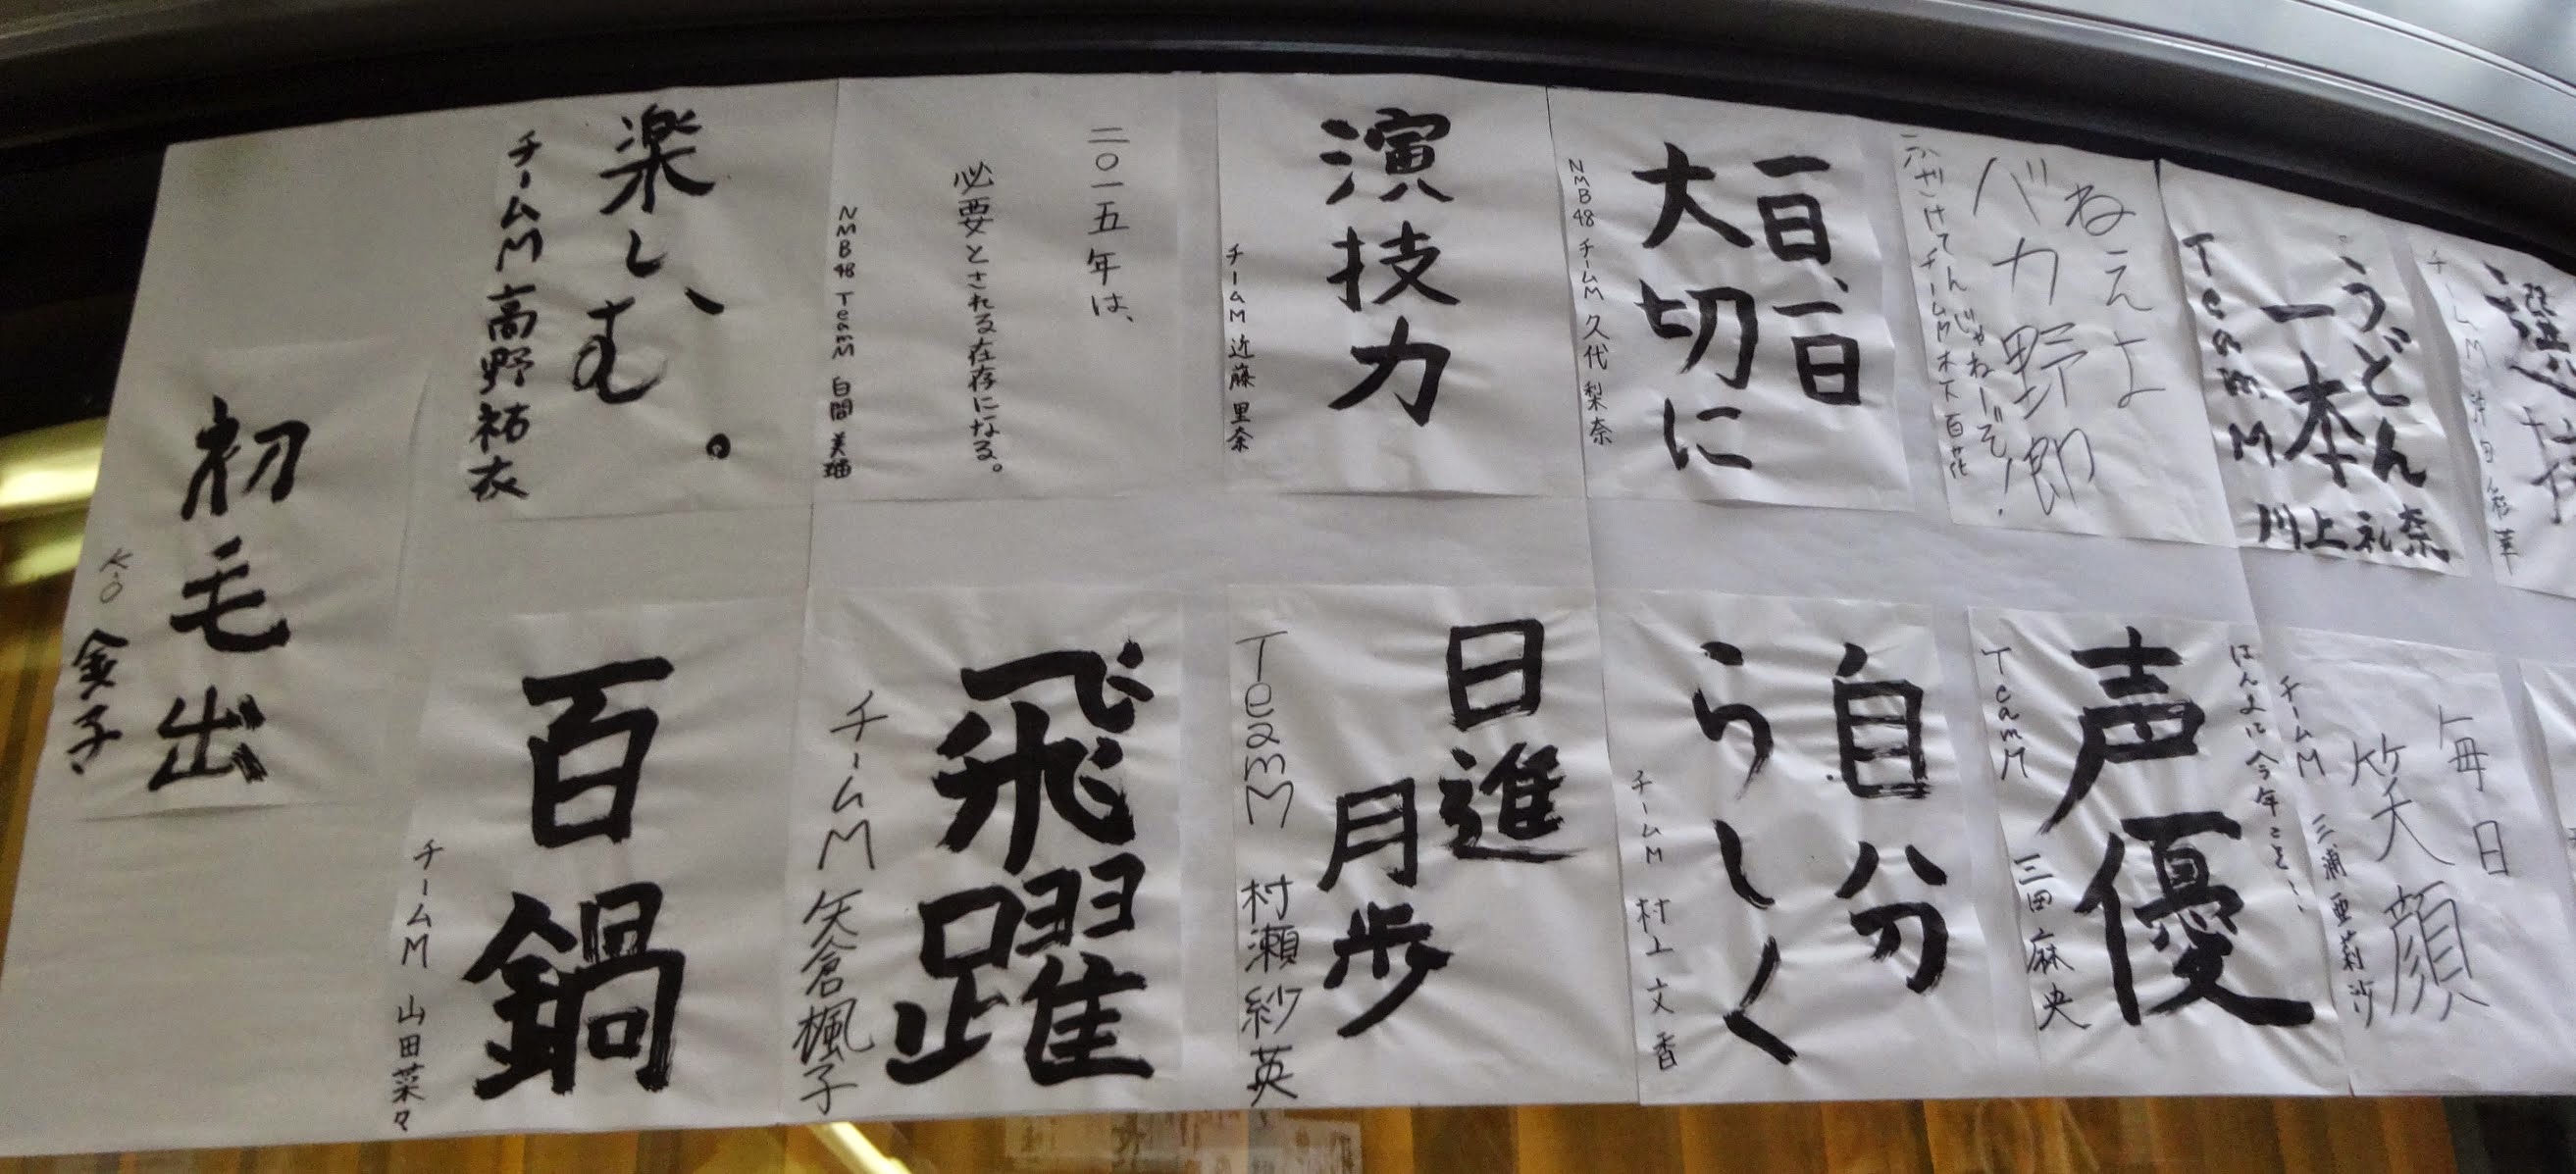 選抜
チームM 沖田彩華
うどん
一本
TeamM 川上礼奈
ねぇよ
バカ野郎
ふざけてんじゃねーぞ!
チームM 木下百花
一日、一日
大切に
NMB48 チームM 久代梨奈
演技力
チームM 近藤里奈
二〇一五年は、
必要とされる在存になる。
NMB48 TeamM 白間美瑠
楽しむ、。
チームM 高野祐衣
毎日
笑顔
チームM 三浦亜莉沙
ほんまに今年こそ…
声優
TeamM 三田麻央
自分
らしく
チームM 村上文香
日進
月歩
TeamM 村瀬紗英
飛躍
チームM 矢倉楓子
百鍋
チームM 山田菜々
初毛出
K-O 金子